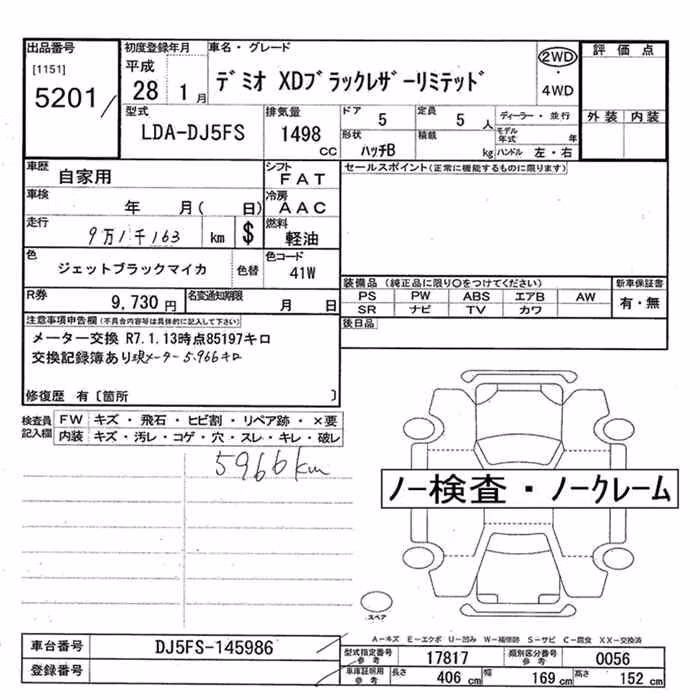 出品番号
[1151]
5201
初度登録年月
平成
28 1月
車名・グレード
デミオ XDブラックレザーリミテッド
2WD
・
4WD
評価点
外装 内装
型式
LDA-DJ5FS
排気量
1498
CC
ドア
5
定員
5 人
ディーラー・並行
モデル年式 年
形状
ハッチB
積載
kg
ハンドル 左・右
車歴
自家用
シフト
FAT
セールスポイント(正常に機能するものに限ります)
車検
年 月( 日)
冷房
AAC
走行
9万1千163 km $
燃料
軽油
色
ジェットブラックマイカ
色替
色コード
41W
装備品(純正品に限り○をつけてください)
新車保証書
PS PW ABS エアB AW
有・無
SR ナビ TV カワ
R券
9,730 円
名変通知期限
月 日
後日品
注意事項申告欄(不具合内容等は具体的に記入して下さい)
メーター交換 R7.1.13時点85197キロ
交換記録簿あり 現メーター5.966キロ
修復歴 有〔箇所 〕
検査員記入欄
FW キズ・飛石・ヒビ割・リペア跡・×要
内装 キズ・汚レ・コゲ・穴・スレ・キレ・破レ
5966km
ノー検査・ノークレーム
スペア
A-キズ E-エクボ U-凹み W-補修跡 S-サビ C-腐食 XX-交換済
車台番号
DJ5FS-145986
型式指定番号
参考
17817
類別区分番号
参考
0056
登録番号
車庫証明用
参考
長さ
406 cm
幅
169 cm
高さ
152 cm